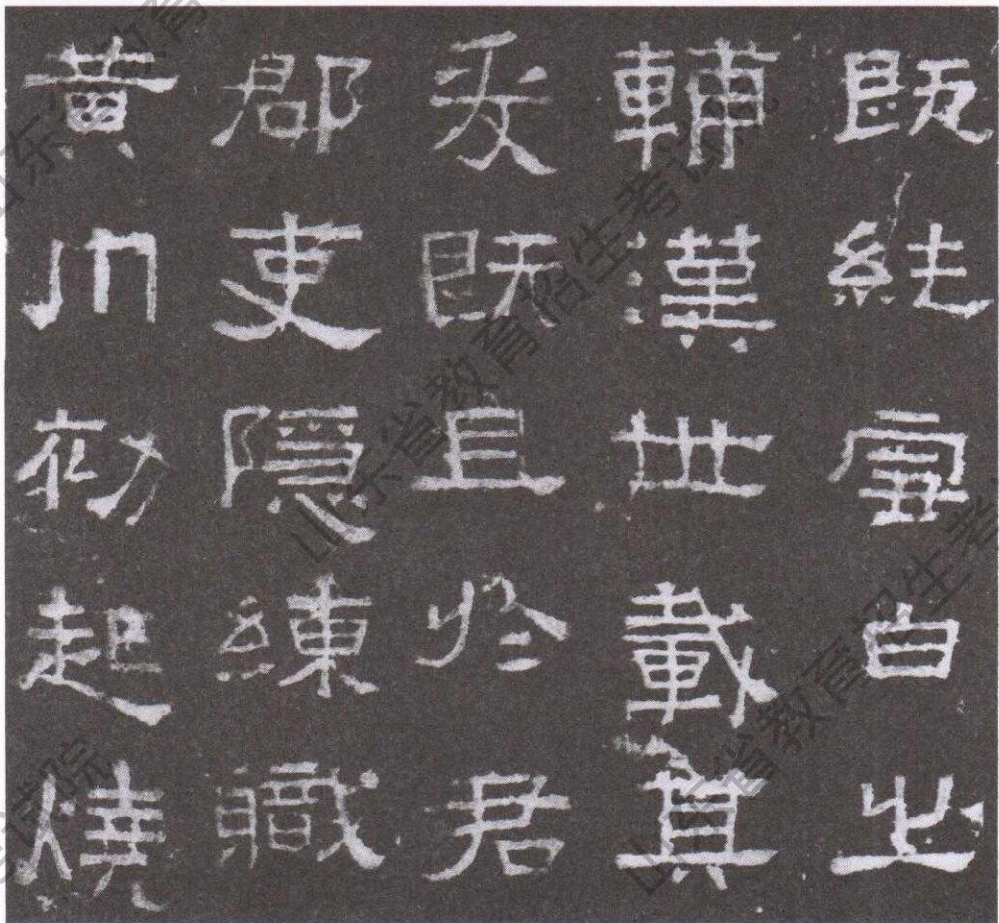 既純雪白之
輔漢世載其
爰既且於君
郡吏隱練職
黃巾初起燒
山东省教育招生考试院